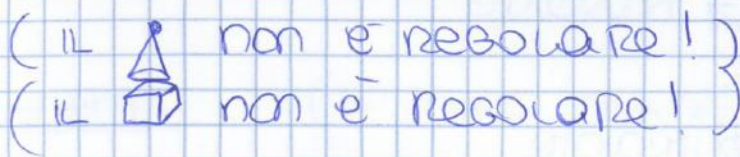 (IL non è REGOLARE!)
(IL non è REGOLARE!)